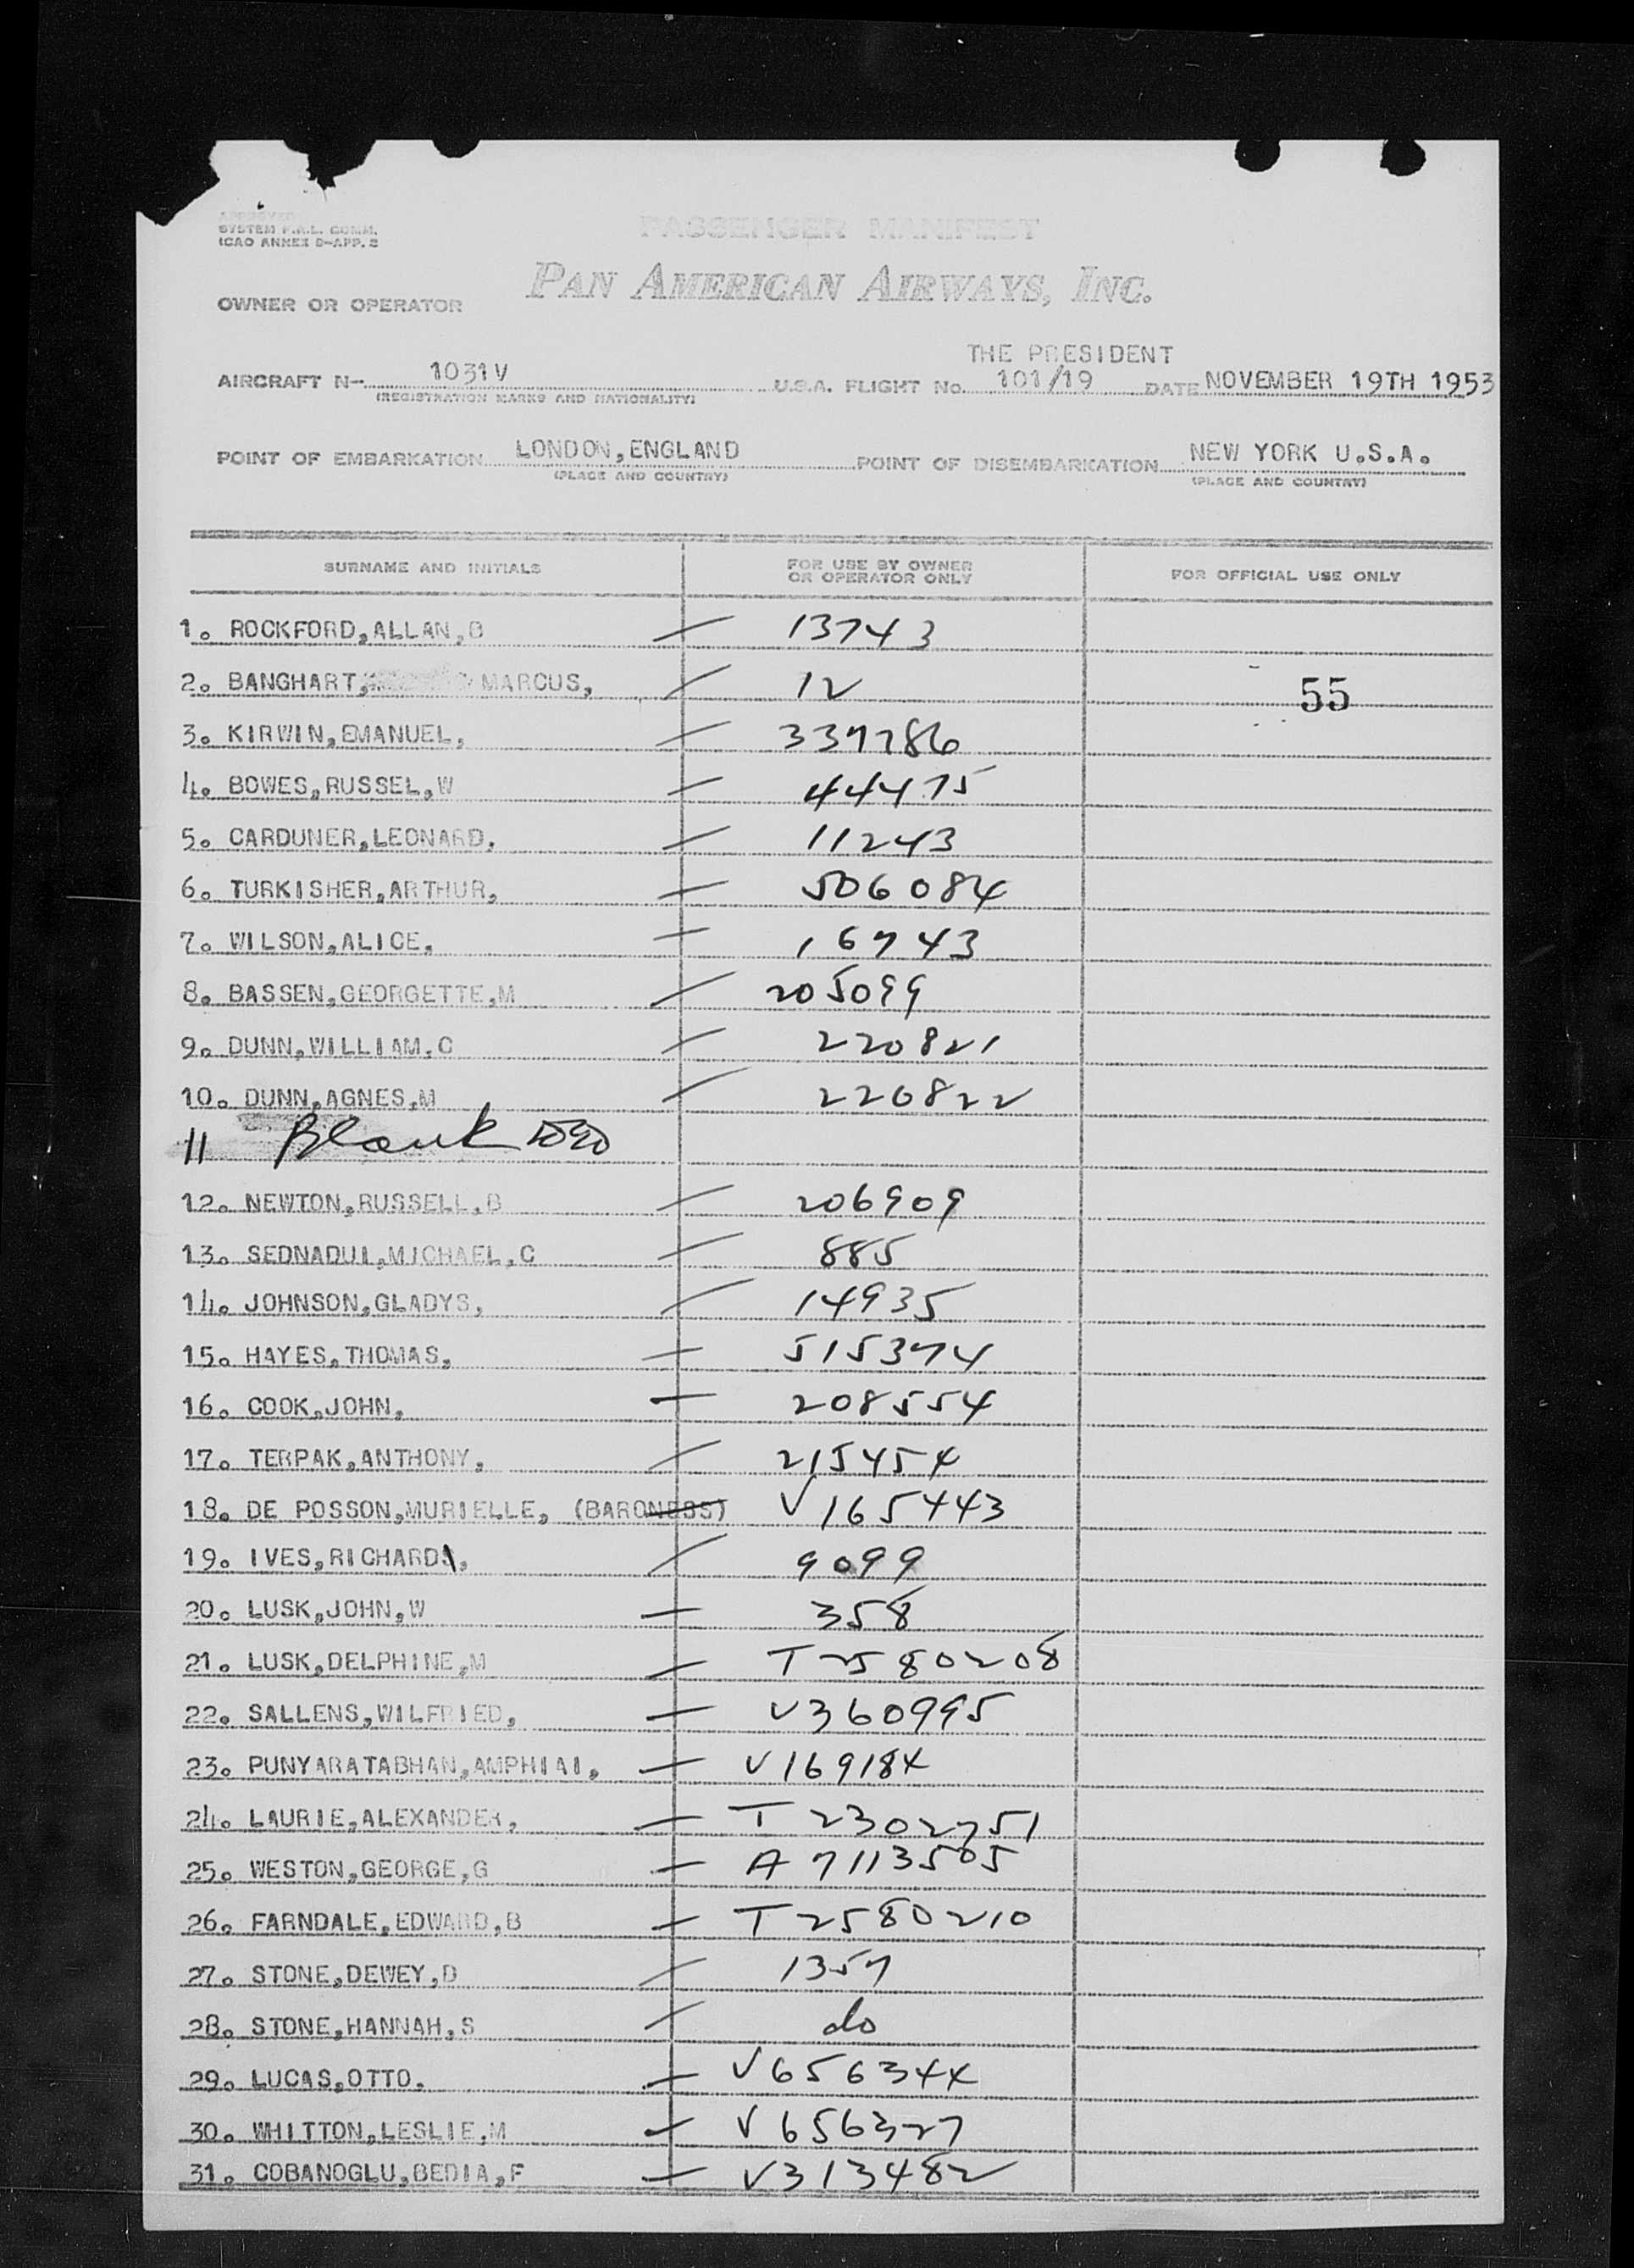 APPROVED
SYSTEM F.A.L. COMM.
ICAO ANNEX 9-APP. 2
PASSENGER MANIFEST
OWNER OR OPERATOR PAN AMERICAN AIRWAYS, INC.
THE PRESIDENT
AIRCRAFT N- 1031V U.S.A. FLIGHT No. 101/19 DATE NOVEMBER 19TH 1953
(REGISTRATION MARKS AND NATIONALITY)
POINT OF EMBARKATION LONDON,ENGLAND POINT OF DISEMBARKATION NEW YORK U.S.A.
(PLACE AND COUNTRY) (PLACE AND COUNTRY)
SURNAME AND INITIALS FOR USE BY OWNER OR OPERATOR ONLY FOR OFFICIAL USE ONLY
1. ROCKFORD,ALLAN,B — 13743
2. BANGHART, MARCUS, — 12 55
3. KIRWIN,EMANUEL, — 337286
4. BOWES,RUSSEL,W — 44475
5. CARDUNER,LEONARD. — 11243
6. TURKISHER,ARTHUR, — 506084
7. WILSON,ALICE, — 16743
8. BASSEN,GEORGETTE,M — 205099
9. DUNN,WILLIAM.C — 220821
10. DUNN,AGNES,M — 220822
11 Blank
12. NEWTON,RUSSELL,B — 206909
13. SEDNADUI,MICHAEL,C — 885
14. JOHNSON,GLADYS, — 14935
15. HAYES,THOMAS, — 515374
16. COOK,JOHN, — 208554
17. TERPAK,ANTHONY, — 215454
18. DE POSSON,MURIELLE, (BARONESS) V165443
19. IVES,RICHARD, — 9099
20. LUSK,JOHN,W — 358
21. LUSK,DELPHINE,M — T2580208
22. SALLENS,WILFRIED, — V360995
23. PUNYARATABHAN,AMPHIAI, — V169184
24. LAURIE,ALEXANDER, — T2302751
25. WESTON,GEORGE,G — A7113505
26. FARNDALE,EDWARD,B — T2580210
27. STONE,DEWEY,D — 1357
28. STONE,HANNAH,S — do
29. LUCAS,OTTO. — V656344
30. WHITTON,LESLIE,M — V656327
31. COBANOGLU,BEDIA,F — V313482